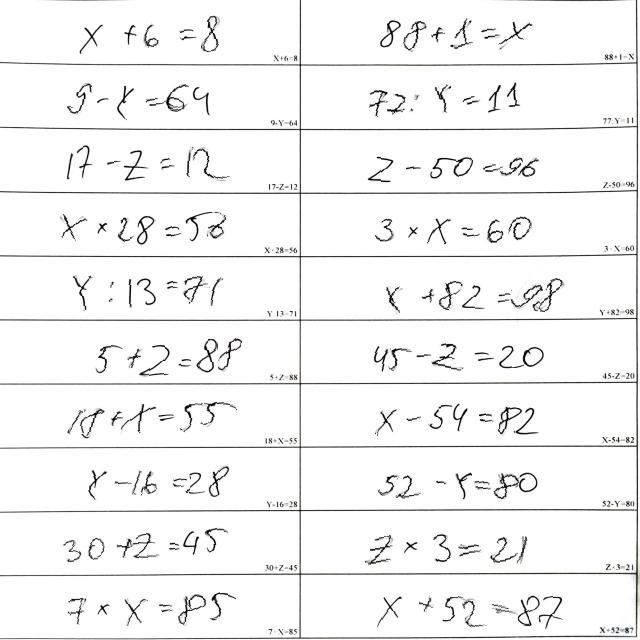 X + 6 = 8
X+6=8
88 + 1 = X
88+1=X
9 - Y = 64
9-Y=64
72 : Y = 11
77:Y=11
17 - Z = 12
17-Z=12
Z - 50 = 96
Z-50=96
X × 28 = 56
X·28=56
3 × X = 60
3·X=60
Y : 13 = 71
Y:13=71
Y + 82 = 98
Y+82=98
5 + Z = 88
5+Z=88
45 - Z = 20
45-Z=20
18 + X = 55
18+X=55
X - 54 = 82
X-54=82
Y - 16 = 28
Y-16=28
52 - Y = 80
52-Y=80
30 + Z = 45
30+Z=45
Z × 3 = 21
Z·3=21
7 × X = 85
7·X=85
X + 52 = 87
X+52=87